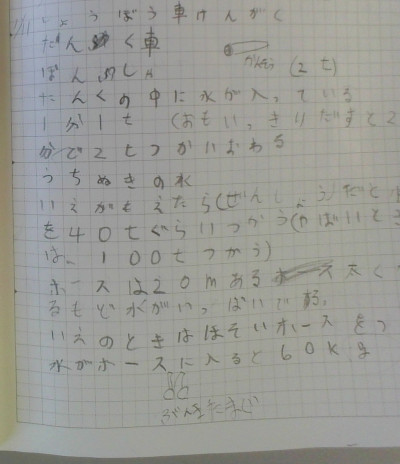 1/11 しょうぼう車けんがく
たんく車
ぽんぷしゃ
(2t)
たんくの中に水が入っている
1が1t (おもい、きりだすと2
かで2tつかいおわる
うちぬきの水
いえがもえたら(ぜんしょう)だと水
を40tぐらいつかう(やばいとき
は、100tつかう)
ホースは20mある ース太く
るもど水がいっぱいでる。
いえのときはほそいホースをつ
水がホースに入ると60kg